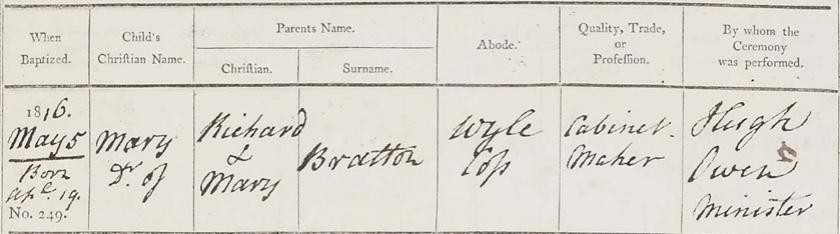 When Baptized.
Child's Christian Name.
Parents Name.
Christian.
Surname.
Abode.
Quality, Trade, or Profession.
By whom the Ceremony was performed.
1816.
May 5
Born
Apl. 19.
No. 249.
Mary
Dr. of
Richard
&
Mary
Bratton
Wyle
Cop
Cabinet
Maker
Hugh
Owen
Minister